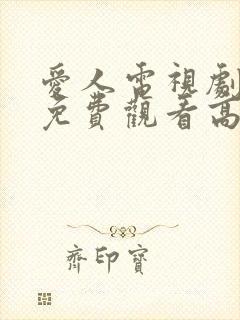 愛人電視劇
免費觀看高
齊印寶